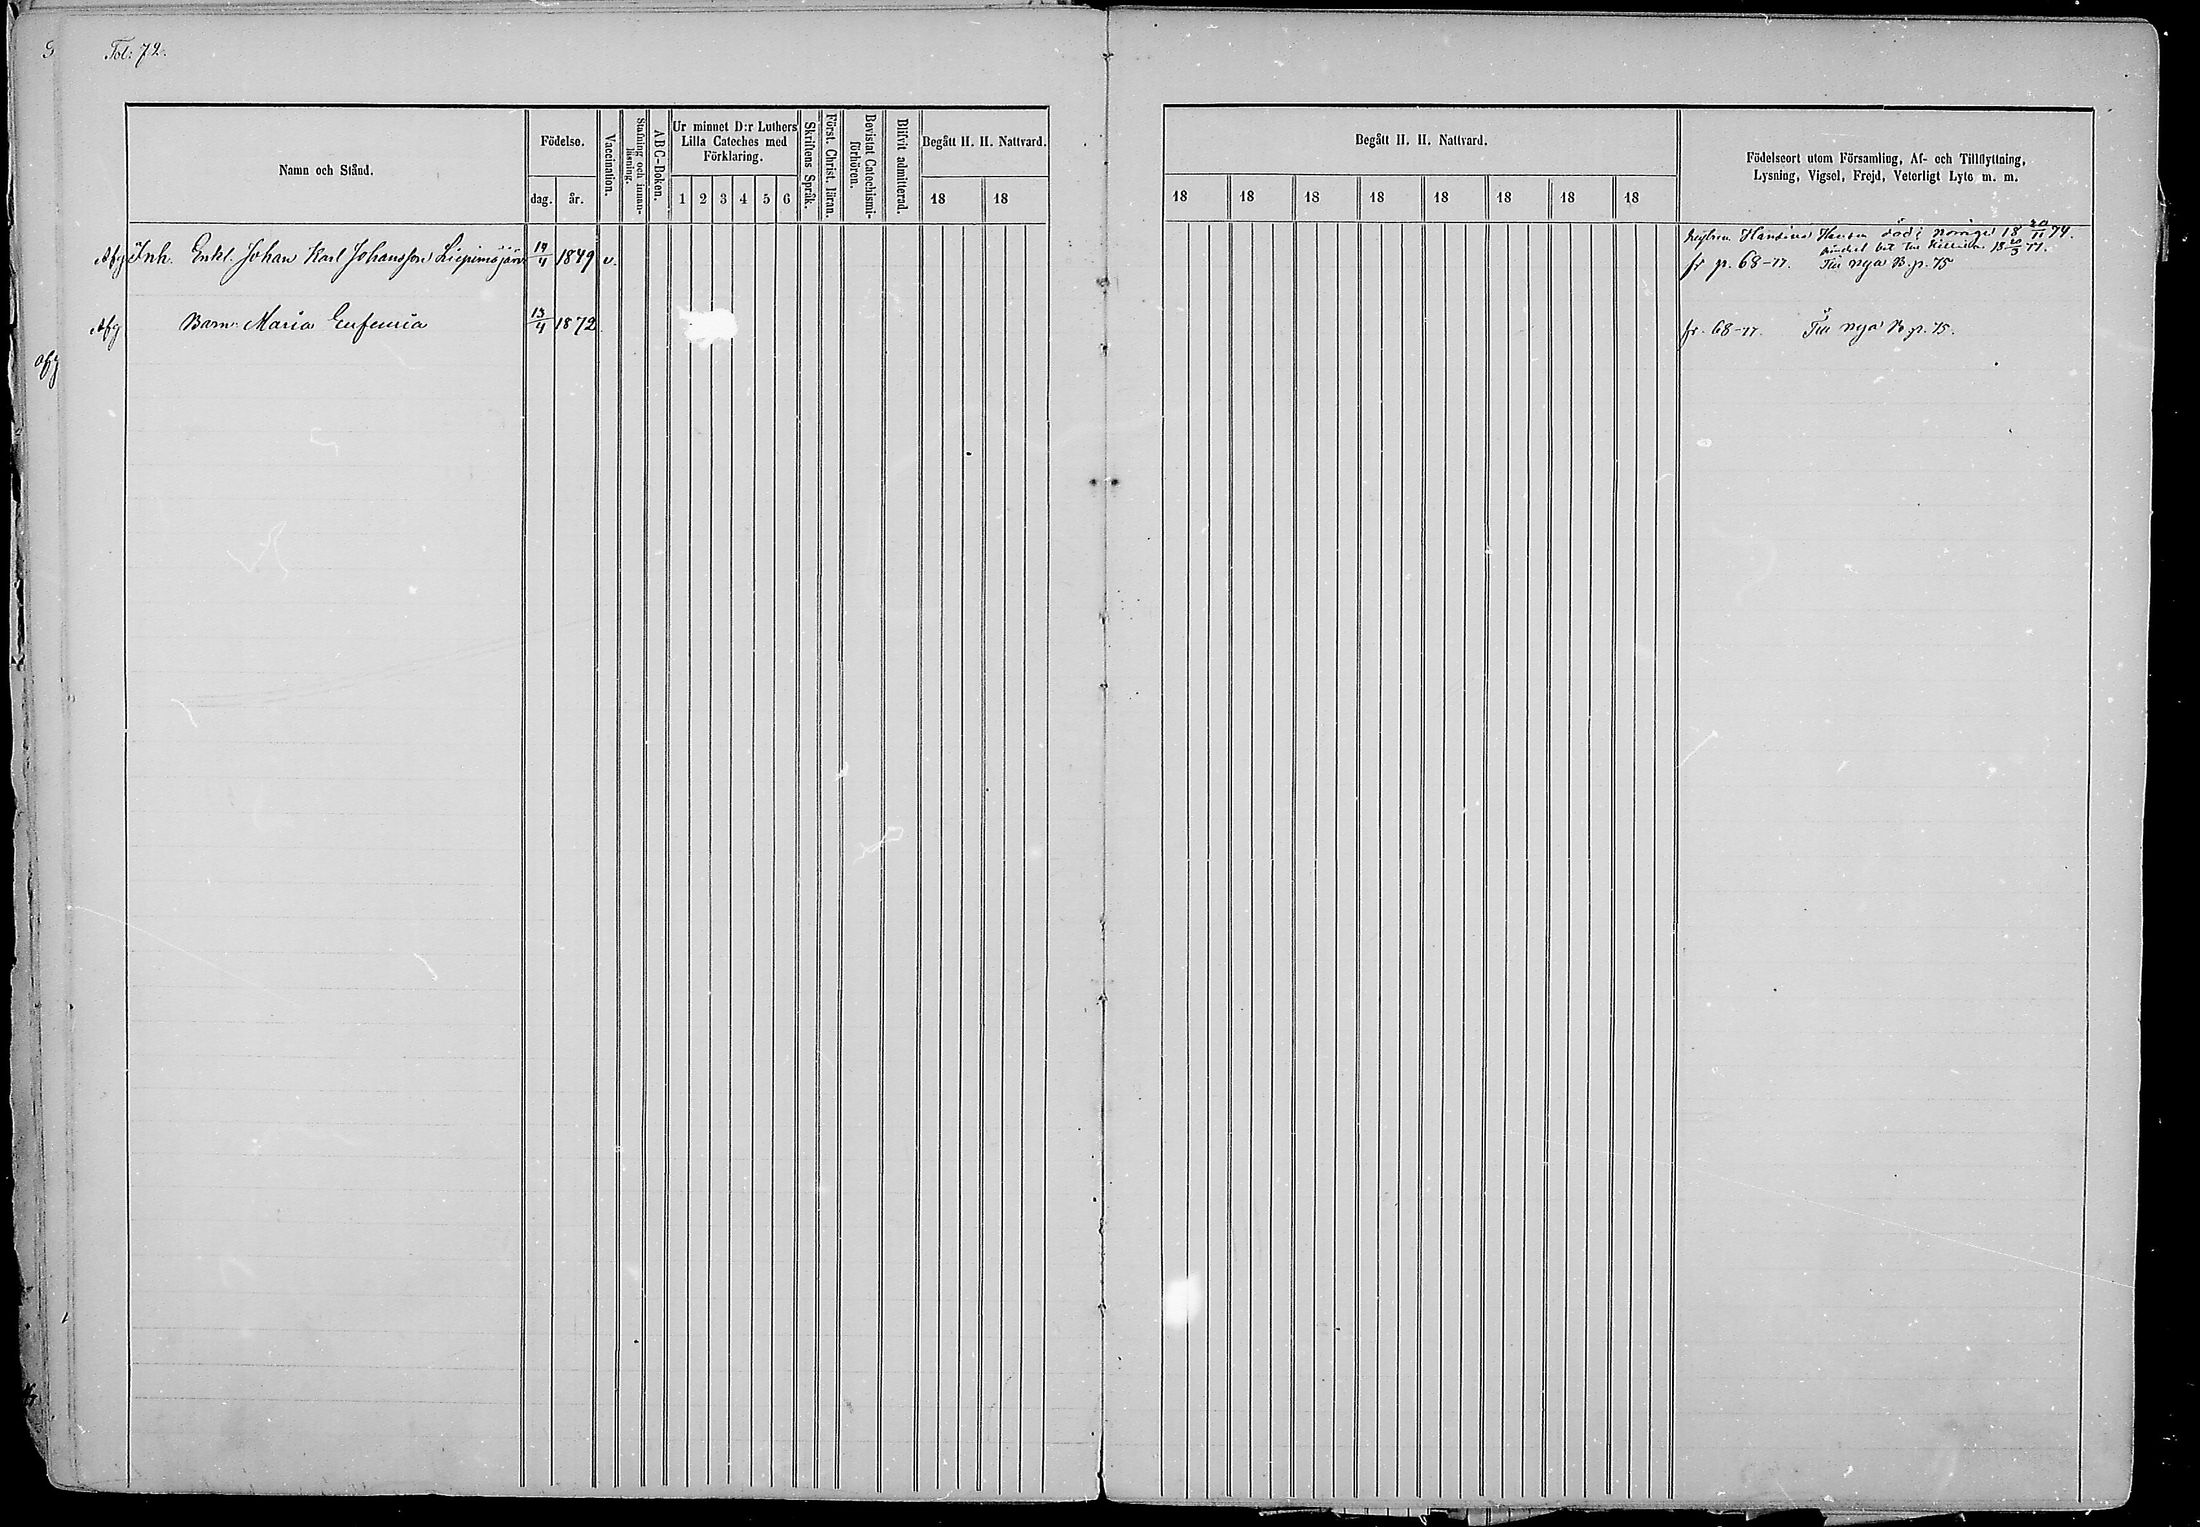 Fol: 72.
Namn och Stånd.
Födelse.
dag.
år.
Vaccination.
Stafning och innan-
läsning.
ABC-Boken.
Ur minnet D:r Luthers
Lilla Cateches med
Förklaring.
1 2 3 4 5 6
Skriftens Språk.
Först. Christ. läran.
Bevistat Catechismi-
förhören.
Blifvit admitterad.
Begått H. H. Nattvard.
18 18
Begått H. H. Nattvard.
18 18 18 18 18 18 18 18
Födelseort utom Församling, Af- och Tillflyttning,
Lysning, Vigsel, Frejd, Veterligt Lyte m. m.
Afg Inh. Enkl. Johan Karl Johansson Liepimäjärvi 14/4 1849 v.
Hustrun Hansina Hansen död i Norrige 18 20/11 74.
18 20/3 77.
fr p. 68-77. Till nya B. p. 75
Afg Barn: Maria Eufemia 13/4 1872
fr. 68-77. Till nya B p. 75.
afg